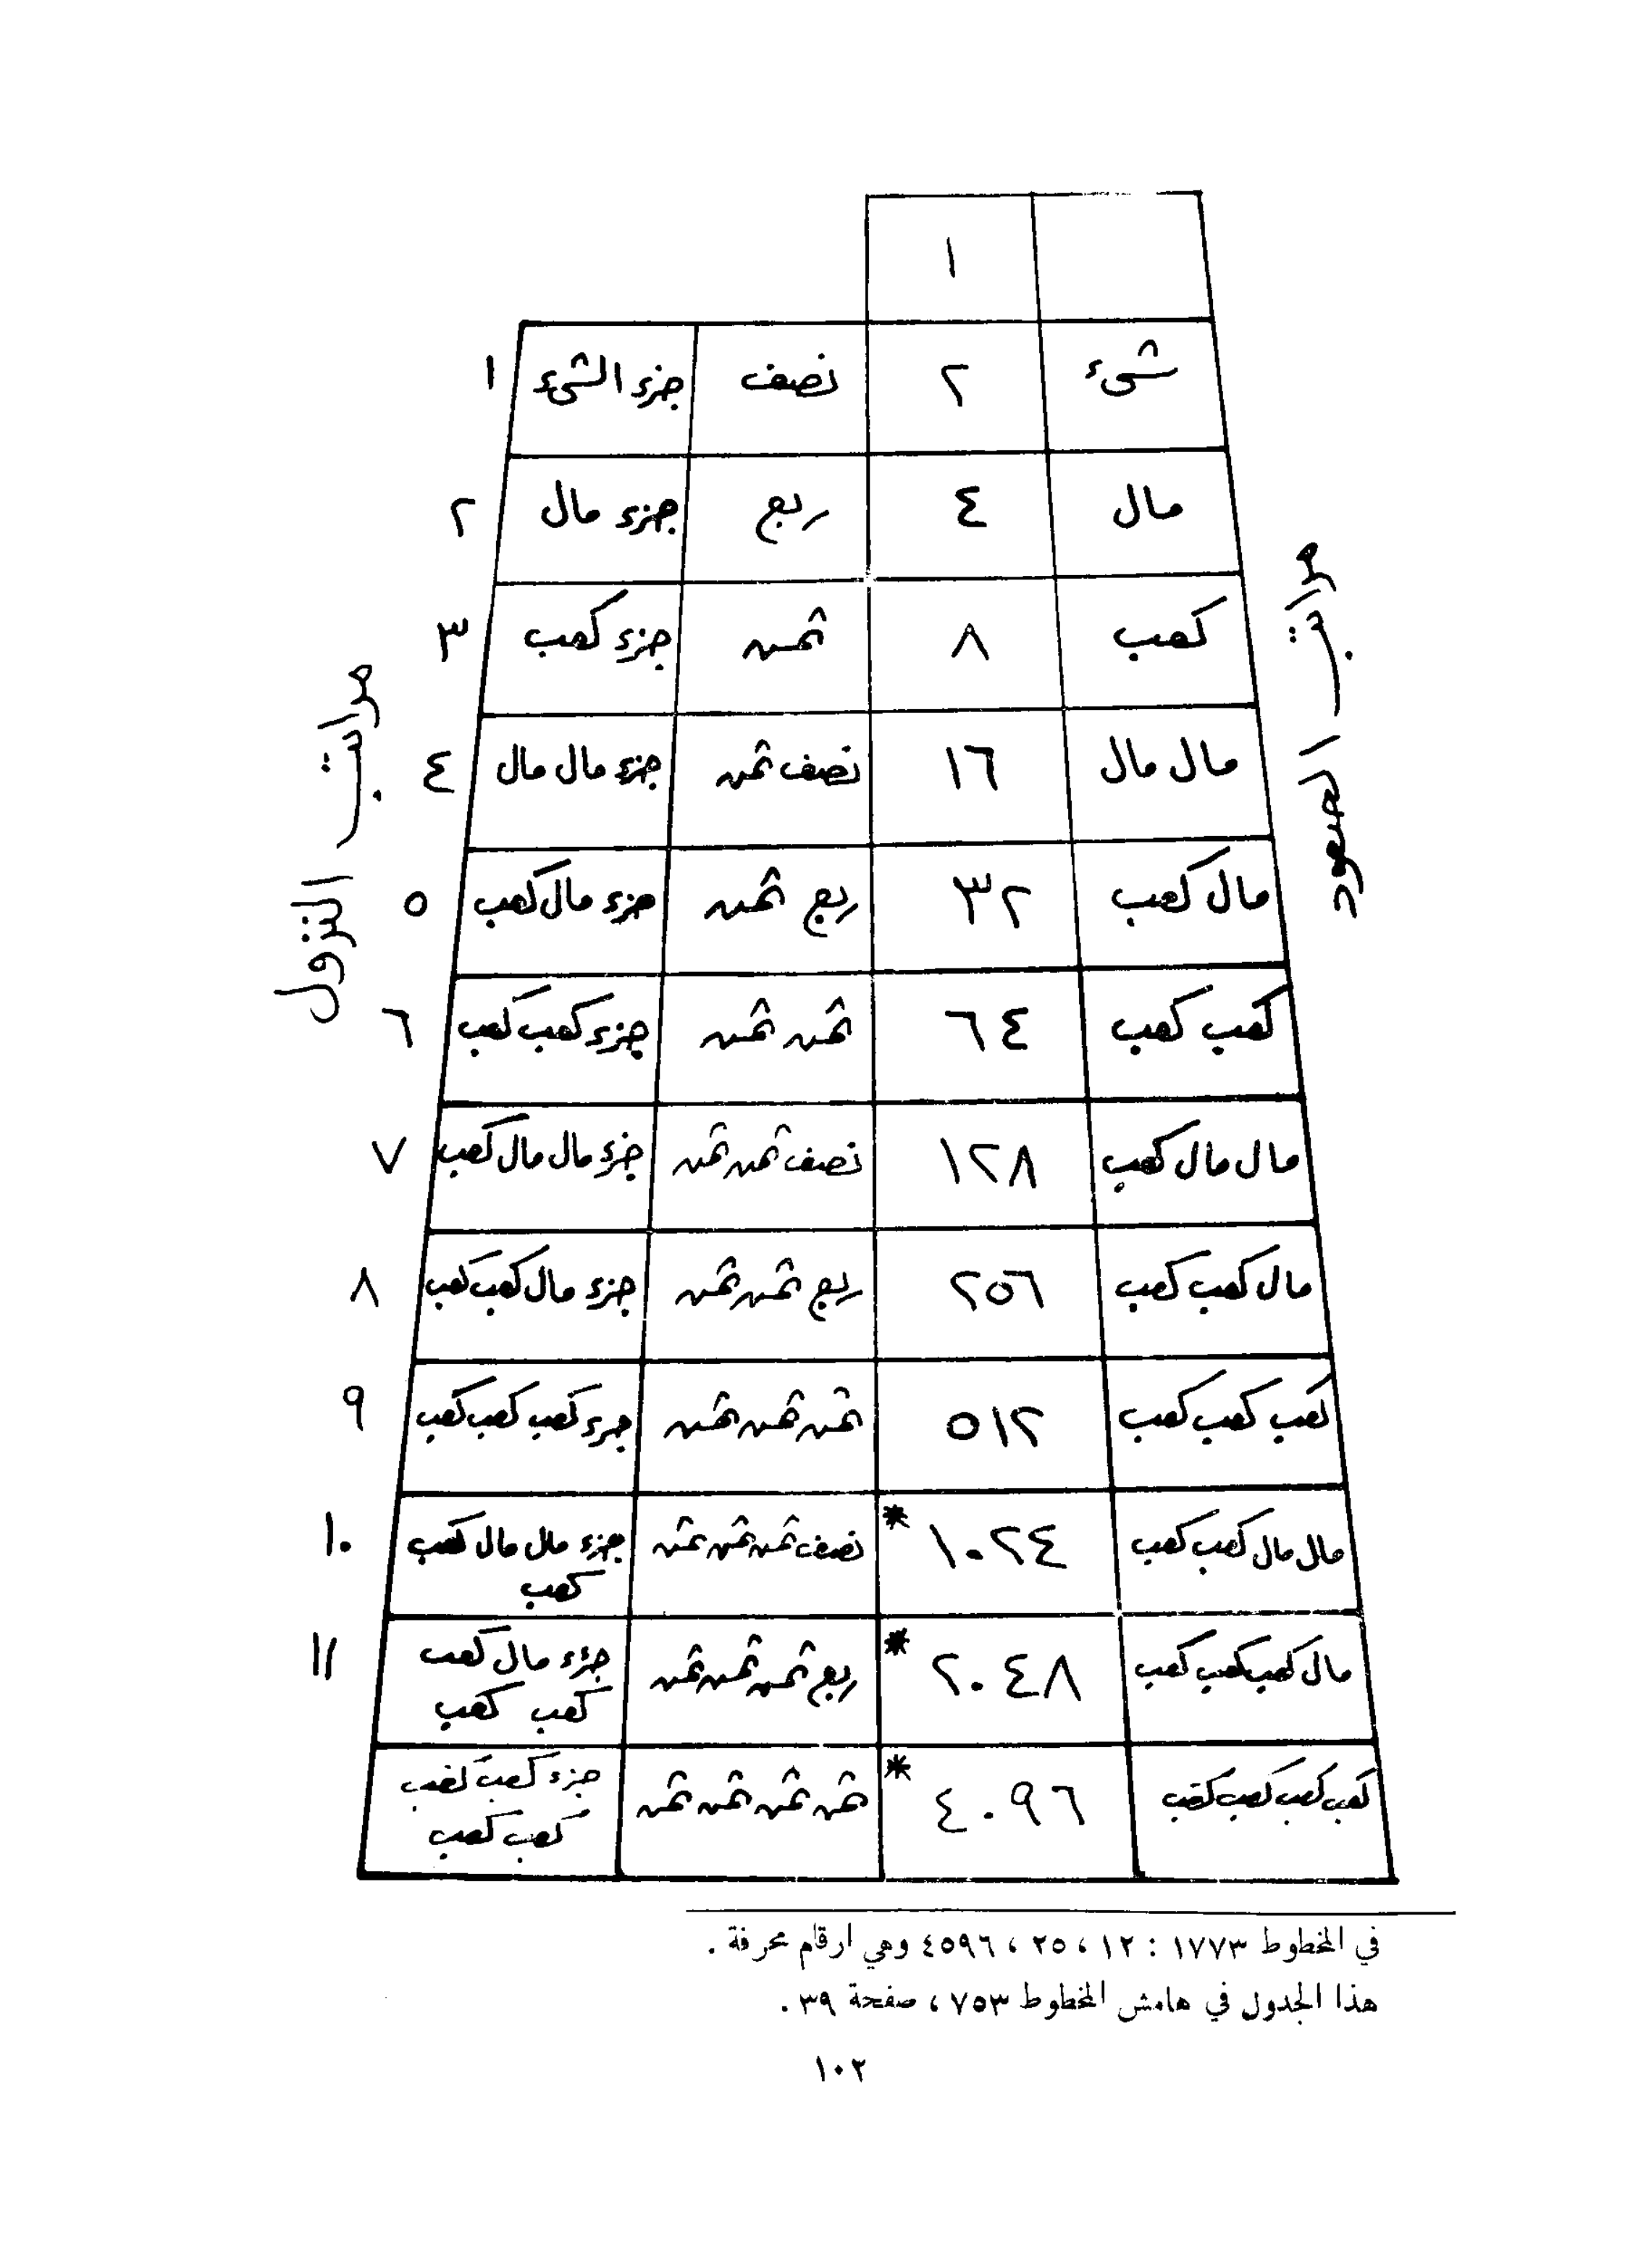 ١
شىء ٢ نصف جزء الشىء ١
مال ٤ ربع جزء مال ٢
كعب ٨ ثمن جزء كعب ٣
مال مال ١٦ نصف ثمن جزء مال مال ٤
مال كعب ٣٢ ربع ثمن جزء مال كعب ٥
كعب كعب ٦٤ ثمن ثمن جزء كعب كعب ٦
مال مال كعب ١٢٨ نصف ثمن ثمن جزء مال مال كعب ٧
مال كعب كعب ٢٥٦ ربع ثمن ثمن جزء مال كعب كعب ٨
كعب كعب كعب ٥١٢ ثمن ثمن ثمن جزء كعب كعب كعب ٩
مال مال كعب كعب ١٠٢٤ * نصف ثمن ثمن ثمن جزء مال مال كعب كعب ١٠
مال كعب كعب كعب ٢٠٤٨ * ربع ثمن ثمن ثمن جزء مال كعب كعب كعب ١١
كعب كعب كعب كعب ٤٠٩٦ * ثمن ثمن ثمن ثمن جزء كعب كعب كعب كعب
مراتب الصعود
مراتب النزول
في المخطوط ١٧٧٣ : ١٢ ، ٢٥ ، ٤٥٩٦ وهي ارقام محرفة .
هذا الجدول في هامش المخطوط ٧٥٣ ، صفحة ٣٩ .
١٠٢